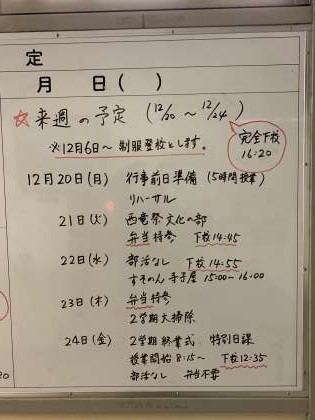 定
月 日( )
☆来週の予定 (12/20 ~ 12/24)
完全下校
16:20
※12月6日~ 制服登校とします。
12月20日(月) 行事前日準備 (5時間授業)
リハーサル
21日(火) 西竜祭文化の部
弁当持参 下校14:45
22日(水) 部活なし 下校14:55
すそのん寺子屋 15:00~16:00
23日(木) 弁当持参
2学期大掃除
24日(金) 2学期終業式 特別日課
授業開始 8:15~ 下校12:35
部活なし 弁当不要
20